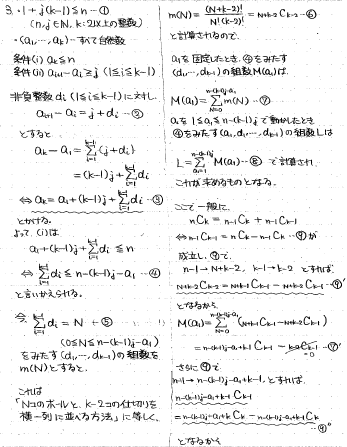 3. ・1+j(k-1)≦n …①
(n,j∈N, k:2以上の整数)
・(a₁,…,aₖ)…すべて自然数
条件(i) aₖ≦n
条件(ii) aᵢ₊₁-aᵢ≧j (1≦i≦k-1)
非負整数dᵢ(1≦i≦k-1)に対し、
aᵢ₊₁-aᵢ=j+dᵢ …②
とすると
aₖ-a₁=Σ_{i=1}^{k-1}(j+dᵢ)
=(k-1)j+Σ_{i=1}^{k-1}dᵢ
⇔aₖ=a₁+(k-1)j+Σ_{i=1}^{k-1}dᵢ …③
とかける。
よって、(i)は
a₁+(k-1)j+Σ_{i=1}^{k-1}dᵢ≦n
⇔Σ_{i=1}^{k-1}dᵢ≦n-(k-1)j-a₁ …④
と言いかえられる。
今、Σ_{i=1}^{k-1}dᵢ=N …⑤
(0≦N≦n-(k-1)j-a₁)
をみたす(d₁,…,dₖ₋₁)の組数を
m(N)とすると、
これは
「Nコのボールと、k-2コの仕切りを
横一列に並べる方法」に等しく、
m(N)=(N+k-2)!/N!(k-2)!=_{N+k-2}C_{k-2} …⑥
と計算されるので、
a₁を固定したとき、④をみたす
(d₁,…,dₖ₋₁)の組数M(a₁)は、
M(a₁)=Σ_{N=0}^{n-(k-1)j-a₁}m(N) …⑦
a₁を1≦a₁≦n-(k-1)jで動かしたとき
④をみたす(a₁,d₁,…,dₖ₋₁)の組数Lは
L=Σ_{a₁=1}^{n-(k-1)j}M(a₁) …⑧ で計算され、
これが求めるものとなる。
ここで一般に、
nCk=n-1Ck+n-1Ck-1
⇔n-1Ck-1=nCk-n-1Ck …⑨が
成立し、⑨で、
n-1→N+k-2, k-1→k-2 とすれば、
N+k-2Ck-2=N+k-1Ck-1-N+k-2Ck-1 …⑨'
となるから、
M(a₁)=Σ_{N=0}^{n-(k-1)j-a₁}(N+k-1Ck-1-N+k-2Ck-1)
=n-(k-1)j-a₁+k-1Ck-1-k-2Ck-1 …⑦'
=0
さらに⑨で、
n-1→n-(k-1)j-a₁+k-1, とすれば、
n-(k-1)j-a₁+k-1Ck-1
=n-(k-1)j-a₁+kCk-n-(k-1)j-a₁+k-1Ck
…⑨''
となるから